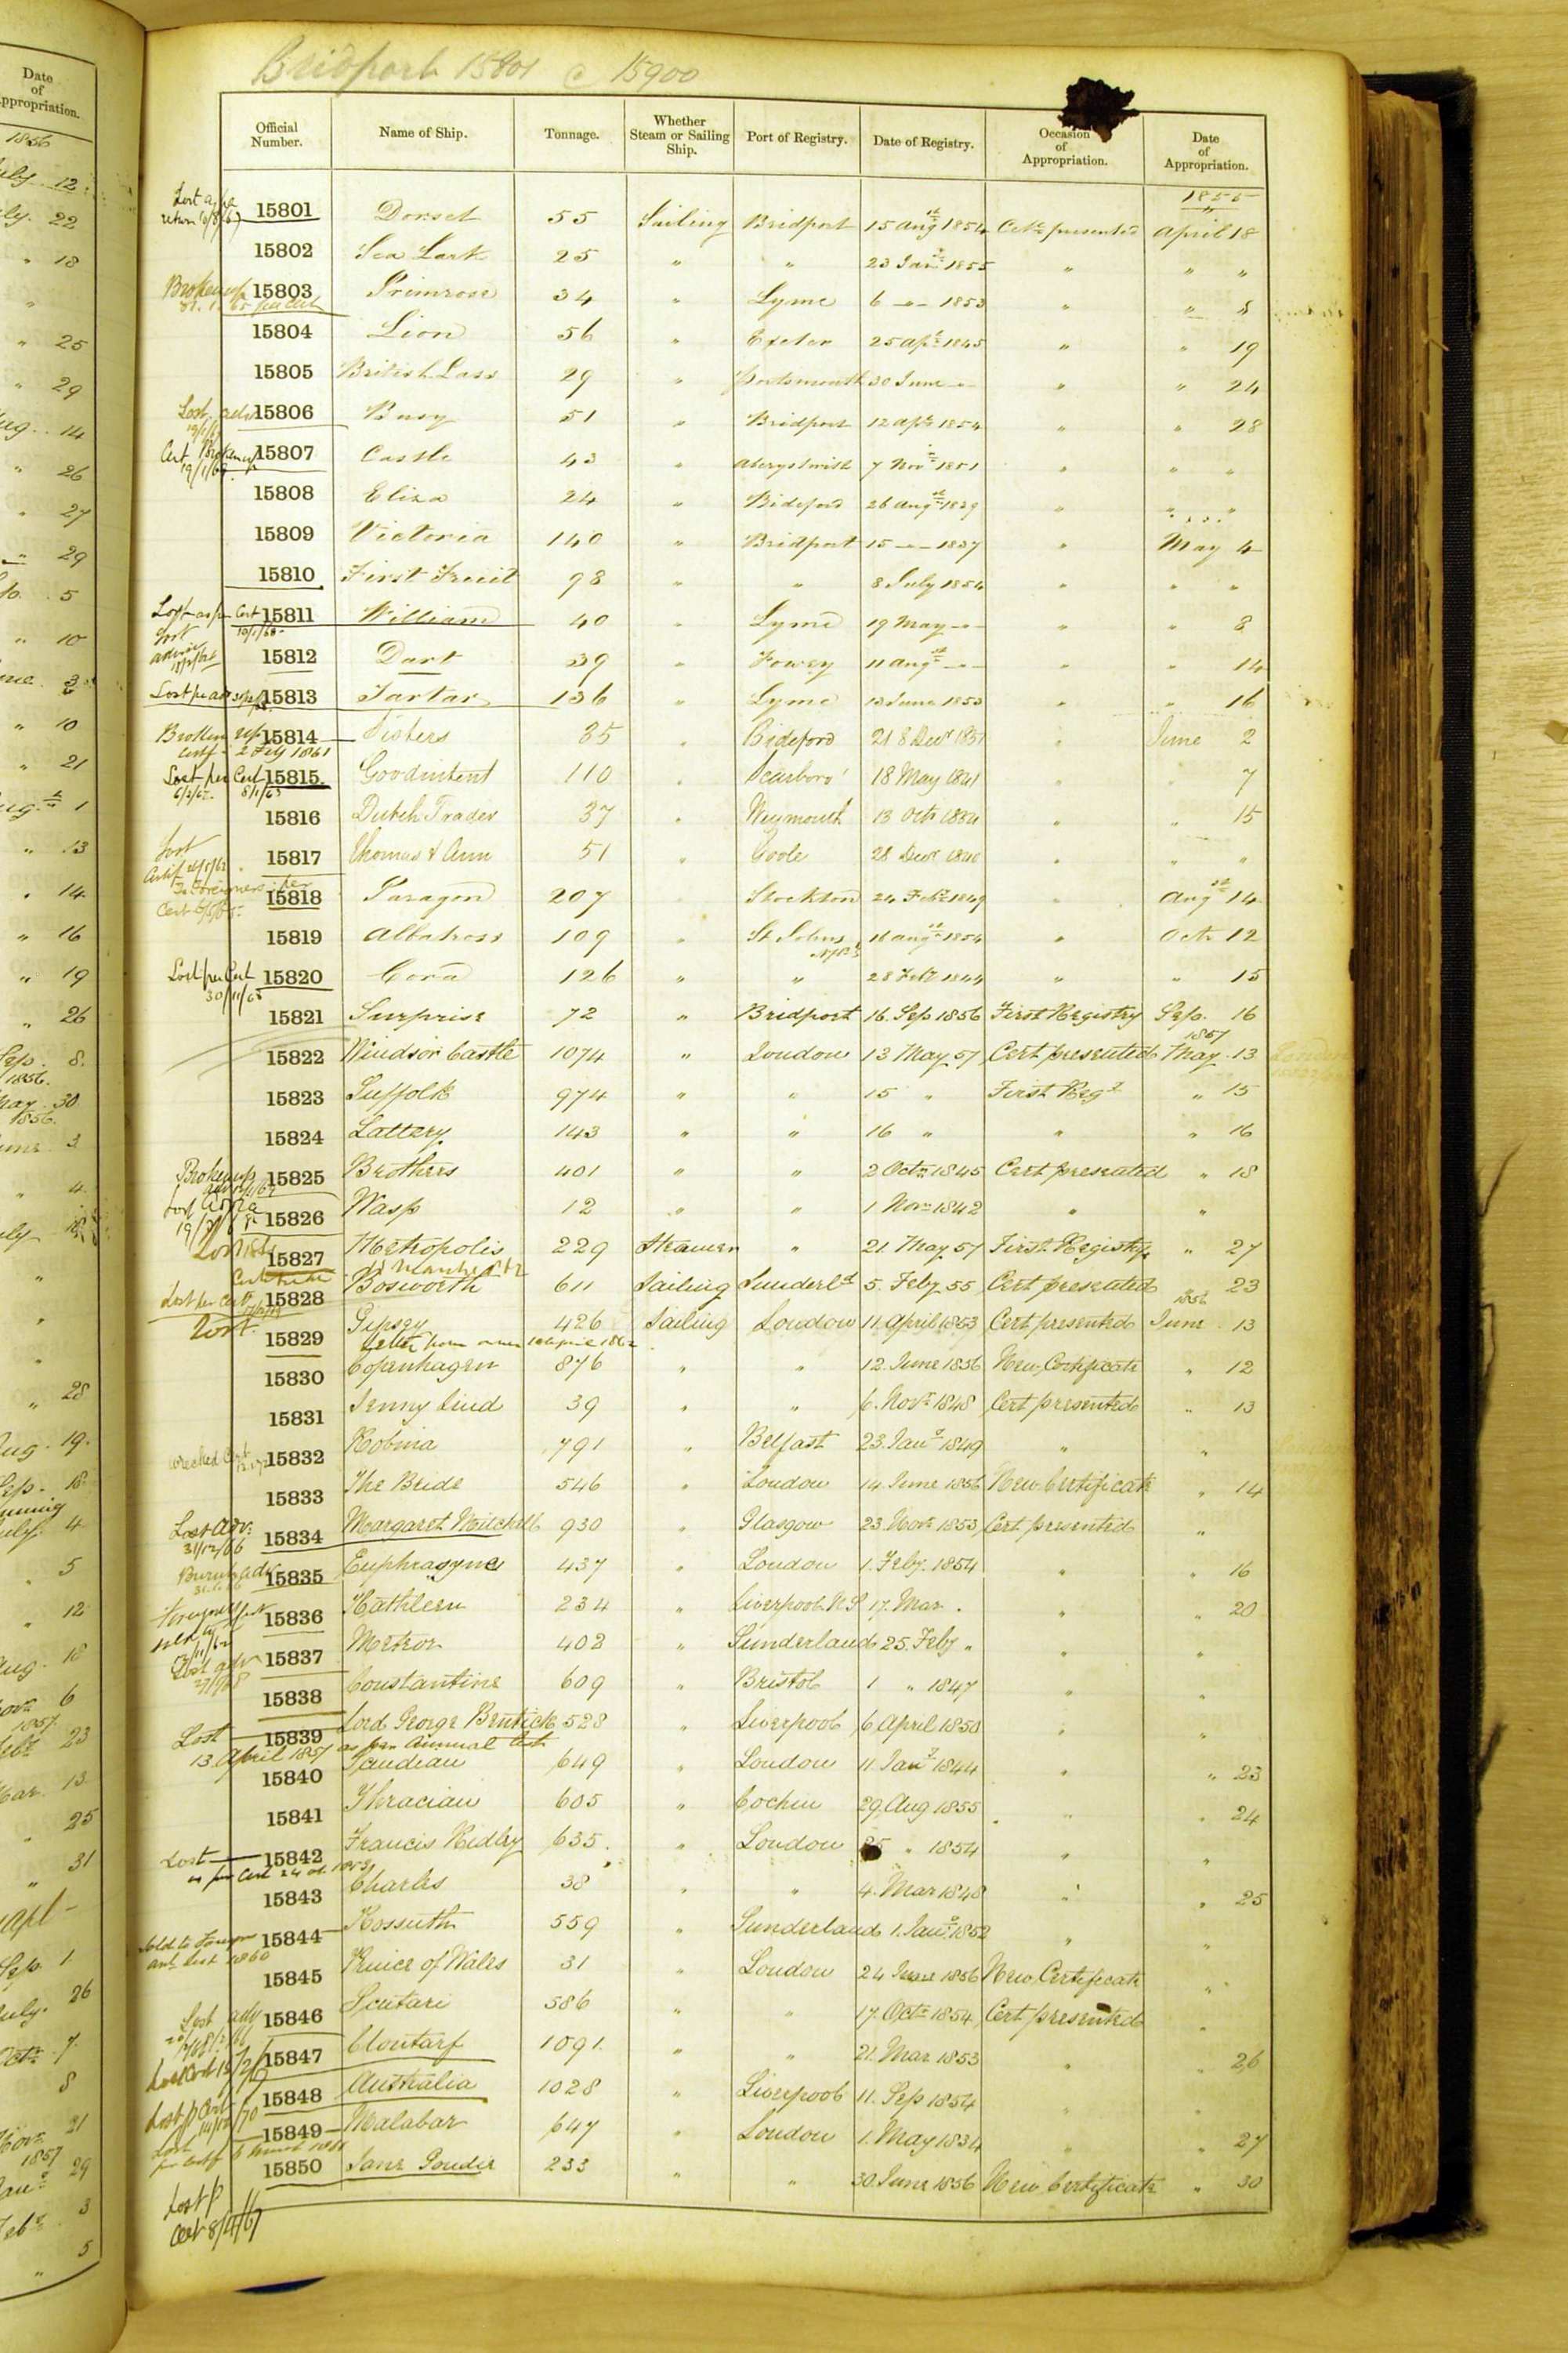 Date of Appropriation.
1856
12
22
18
25
29
14
26
27
29
5
10
10
21
1
13
14
16
19
26
8
1856
30
1856
3
4
28
19
18
4
5
12
18
6
1857
23
13
25
31
1
26
7
8
21
1857
29
3
5
Bridport 15801 @ 15900
Official Number. Name of Ship. Tonnage. Whether Steam or Sailing Ship. Port of Registry. Date of Registry. Occasion of Appropriation. Date of Appropriation.
1855
15801 Dorset 55 Sailing Bridport 15 Augst 1854 Certe presented April 18
15802 Sea Lark 25 " " 23 Jany 1855 " " "
Broken up 15803 Primrose 34 " Lyme 6 -"- 1853 " " "
15804 Lion 56 " Exeter 25 Apl 1845 " " 19
15805 British Lass 29 " Portsmouth 30 June -"- " " 24
Lost advice 15806 Busy 51 " Bridport 12 Apl 1854 " " 28
Cert Broken up 15807 Castle 43 " Aberystwith 7 Nov 1851 " " "
15808 Eliza 24 " Bideford 26 Augst 1839 " " "
15809 Victoria 140 " Bridport 15 -"- 1837 " May 4
15810 First Fruit 98 " " 8 July 1854 " " "
Lost as per Cert 15811 William 40 " Lyme 19 May -"- " " 8
Lost advice 15812 Dart 39 " Fowey 11 Augst -"- " " 14
15813 Tartar 136 " Lyme 13 June 1853 " " 16
Broken up 15814 Sisters 35 " Bideford 21 Decr 1831 " June 2
certf 2 Feby 1861
Lost per Cert 15815 Goodintent 110 " Scarboro' 18 May 1841 " " 7
8/1/63
15816 Dutch Trader 37 " Weymouth 13 Octr 1834 " " 15
Lost 15817 Thomas & Ann 51 " Goole 28 Decr 1840 " " "
To Foreigners per
15818 Paragon 207 " Stockton 24 Feby 1849 " Augst 14
15819 Albatross 109 " St Johns 16 Augst 1854 " Octr 12
Lost per Cert 15820 Cora 126 " " 28 Feby 1844 " " 15
30/11/65
15821 Surprise 72 " Bridport 16. Sep 1856 First Registry Sep. 16
1857
15822 Windsor Castle 1074 " London 13 May 57 Cert presented May 13
15823 Suffolk 974 " " 15 " First Regy " 15
15824 Lattery 143 " " 16 " " " 16
Broken up 15825 Brothers 401 " " 2 Octr 1845 Cert presented " 18
15826 Wasp 12 " " 1 Novr 1842 " "
15827 Metropolis 229 Steamer " 21 May 57 First Registry " 27
15828 Bosworth 611 Sailing Sunderld 5. Feby 55 Cert presented 23
1856
Lost 15829 Gipsey 426 Sailing London 11. April 1853 Cert presented June 13
Letter from owner
15830 Copenhagen 876 " " 12. June 1856 New Certificate " 12
15831 Jenny Lind 39 " " 6. Novr 1848 Cert presented " 13
Wrecked Cert 15832 Robina 791 " Belfast 23. Jany 1849 " "
15833 The Bride 546 " London 14. June 1856 New Certificate " 14
Lost adv. 31/12/66 15834 Margaret Mitchell 930 " Glasgow 23. Novr 1853 Cert presented "
15835 Euphrasyne 437 " London 1. Feby. 1854 " " 16
15836 Kathleen 234 " Liverpool N.S 17. Mar " " " 20
15837 Meteor 402 " Sunderland 25. Feby " " "
Lost adv 15838 Constantine 609 " Bristol 1 " 1847 " "
Lost 15839 Lord George Bentick 528 " Liverpool 6 April 1850 " "
13. April 1857 as per Annual List
15840 649 " London 11. Jany 1844 " " 23
15841 Thracian 605 " Cochin 29. Aug 1855 " " 24
Lost 15842 Francis Ridley 635 " London 25 " 1854 " "
as per Cert
15843 Charles 38 " " 4. Mar 1848 " " 25
Sold to Foreign 15844 Kossuth 559 " Sunderland 1. Jany 1852 " "
ant List 1860
15845 Prince of Wales 31 " London 24 June 1856 New Certificate "
Lost adv 15846 Scutari 586 " " 17. Octr 1854 Cert presented "
15847 Clontarf 1091 " " 21. Mar 1853 " " 26
Lost p Cert 15848 Australia 1028 " Liverpool 11. Sep 1854 " "
Lost 15849 Malabar 647 " London 1. May 1834 " " 27
15850 Jane Goudie 233 " " 30. June 1856 New Certificate " 30
Lost p
Cert 8/4/67